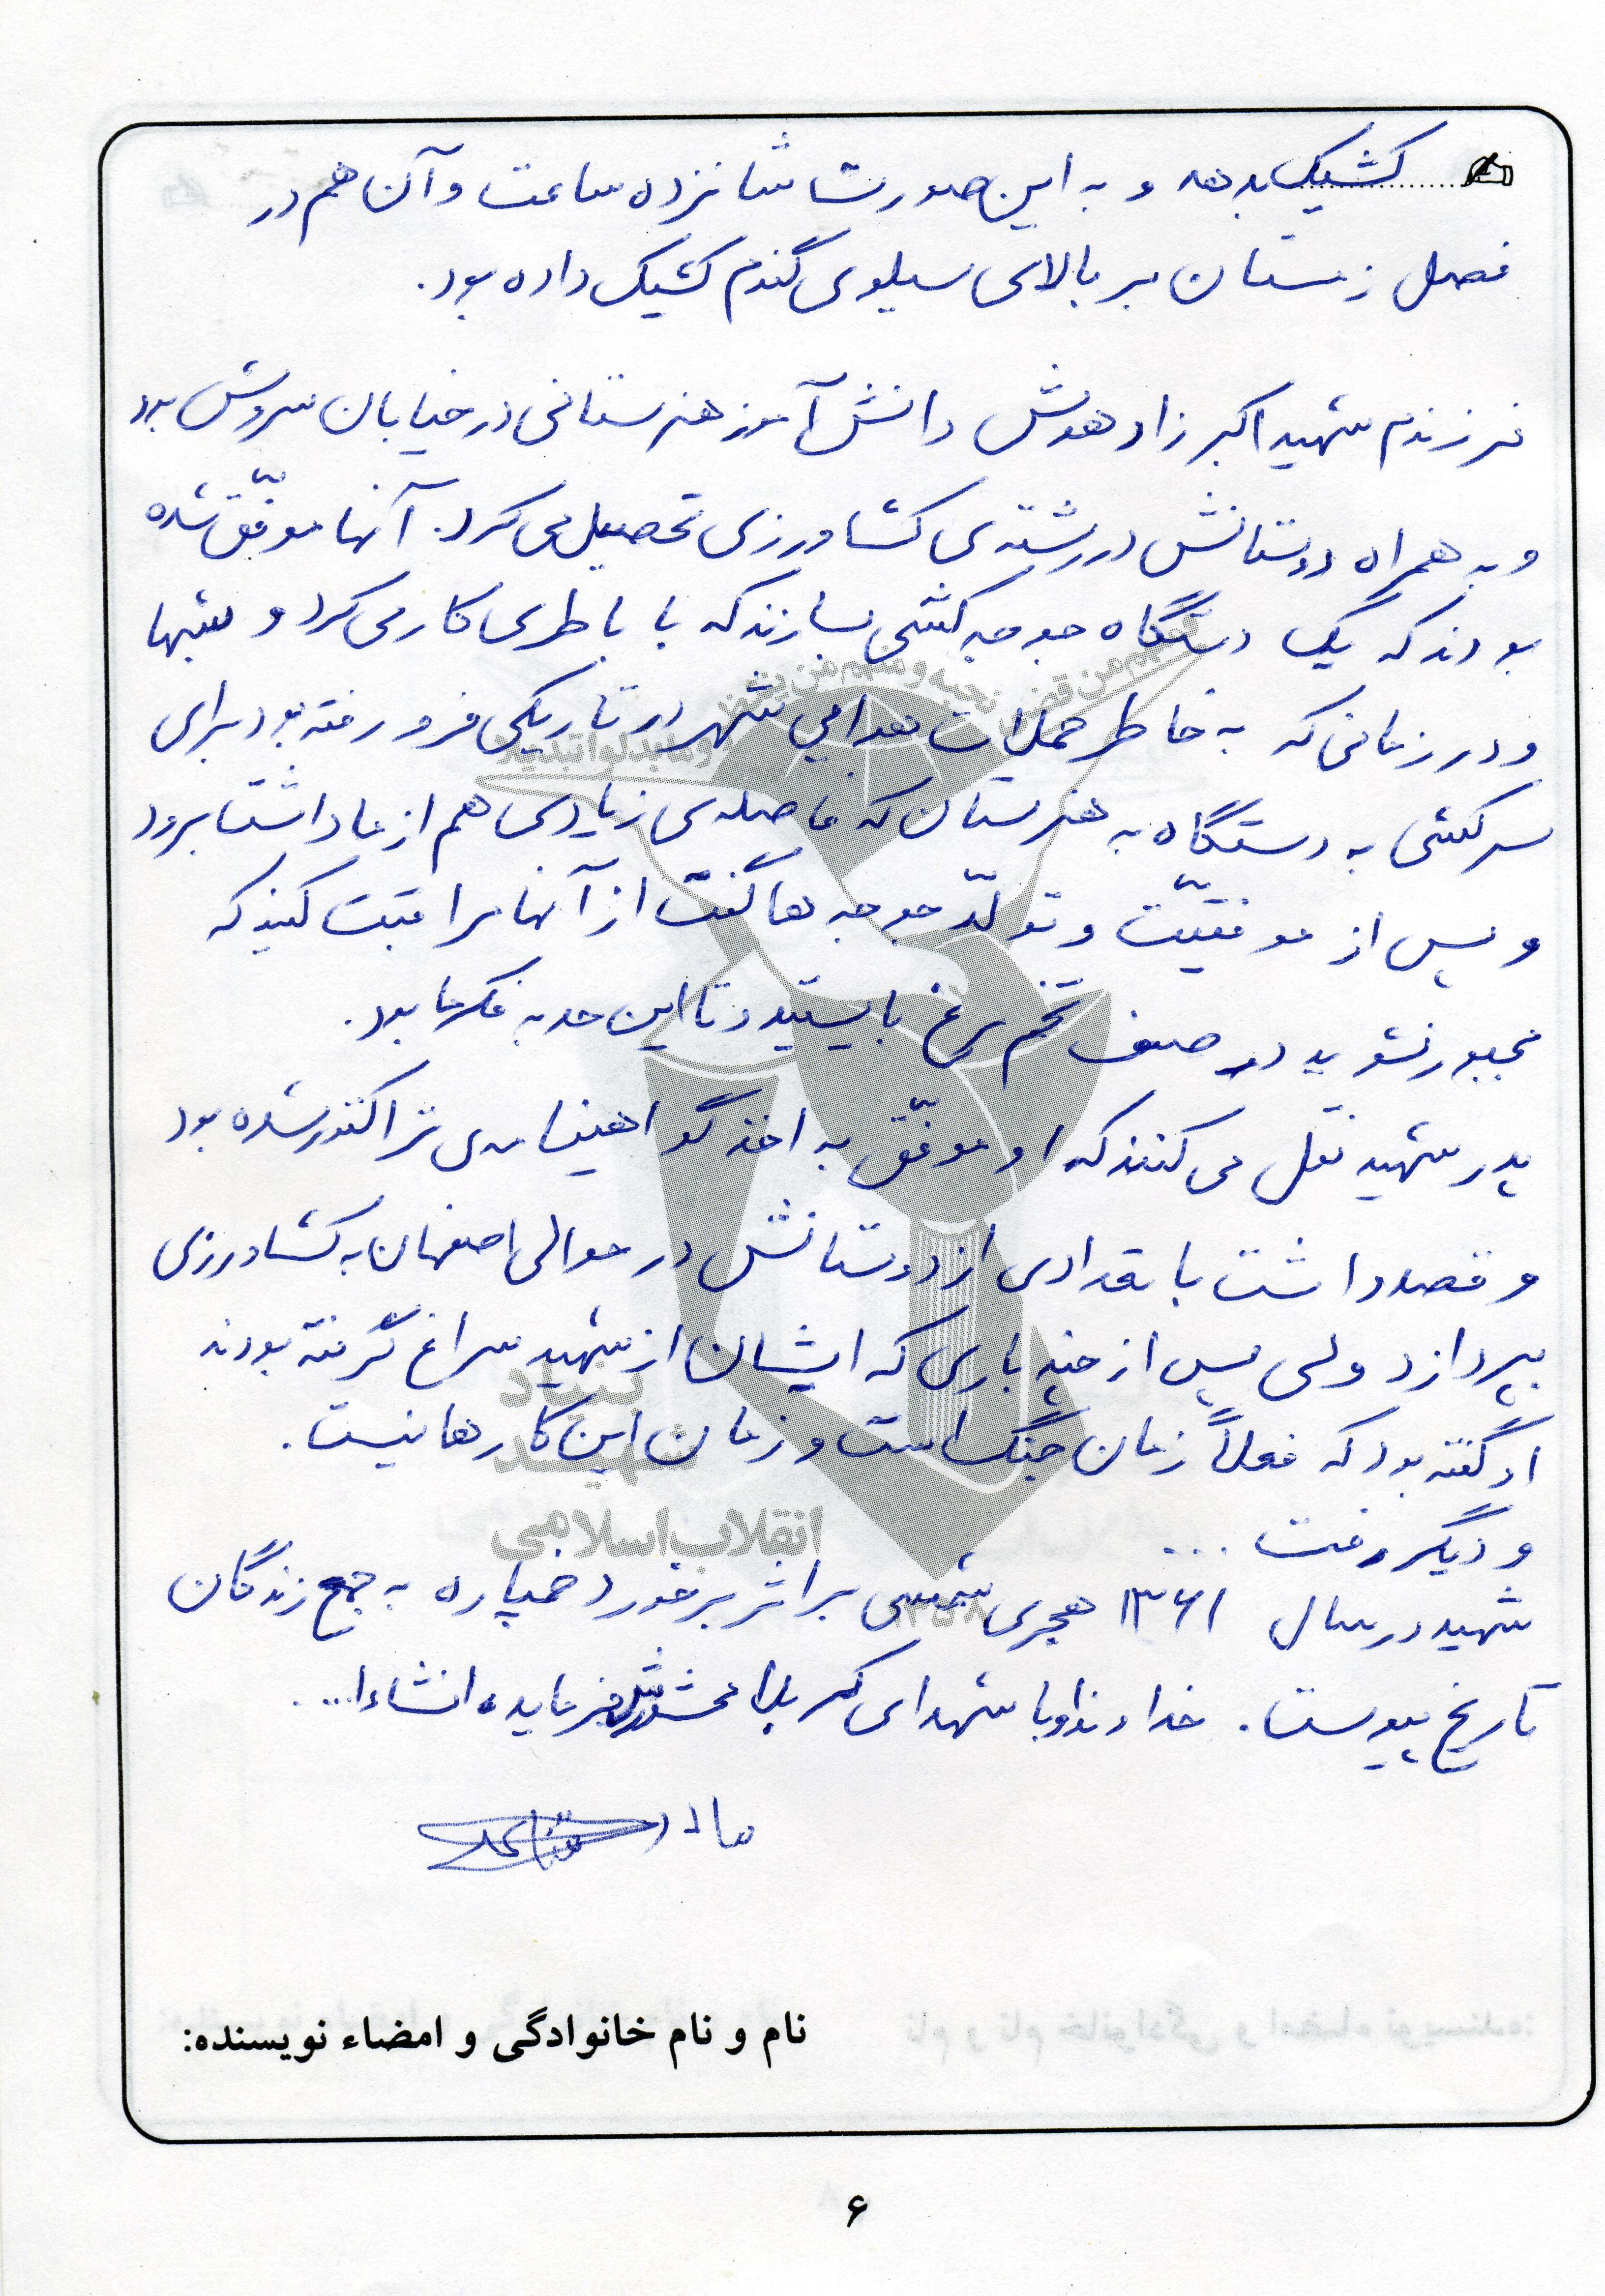 کشیک بدهد و به این صورت شانزده ساعت و آن هم در
فصل زمستان بر بالای سیلوی گندم کشیک داده بود.
فرزندم شهید اکبر زاد هوش دانش آموز هنرستانی در خیابان سروش بود
و به همراه دوستانش در رشته‌ی کشاورزی تحصیل می کرد. آنها موفّق شده
بودند که یک دستگاه جوجه کشی بسازند که با باطری کار می کرد و شبها
و در زمانی که به خاطر حملات هوایی شهر در تاریکی فرو رفته بود برای
سرکشی به دستگاه به هنرستان که فاصله‌ی زیادی هم از ما داشت برود
و پس از موفقیّت و تولّد جوجه ها گفت از آنها مراقبت کنید که
مجبور نشوید در صف تخم مرغ بایستید و تا این حد به فکر ما بود.
پدر شهید نقل می کنند که او موفّق به اخذ گواهینامه‌ی تراکتور شده بود
و قصد داشت با تعدادی از دوستانش در حوالی اصفهان به کشاورزی
بپردازد ولی پس از چند باری که ایشان از شهید سراغ گرفته بودند
او گفته بود که فعلاً زمان جنگ است و زمان این کارها نیست.
و دیگر رفت ...
شهید در سال ۱۳۶۱ هجری شمسی بر اثر برخورد خمپاره به جمع زندگان
تاریخ پیوست. خداوند او با شهدای کربلا محشورش فرماید، انشاءا...
مادر
بنیاد
شهید
انقلاب اسلامی
نام و نام خانوادگی و امضاء نویسنده:
۶